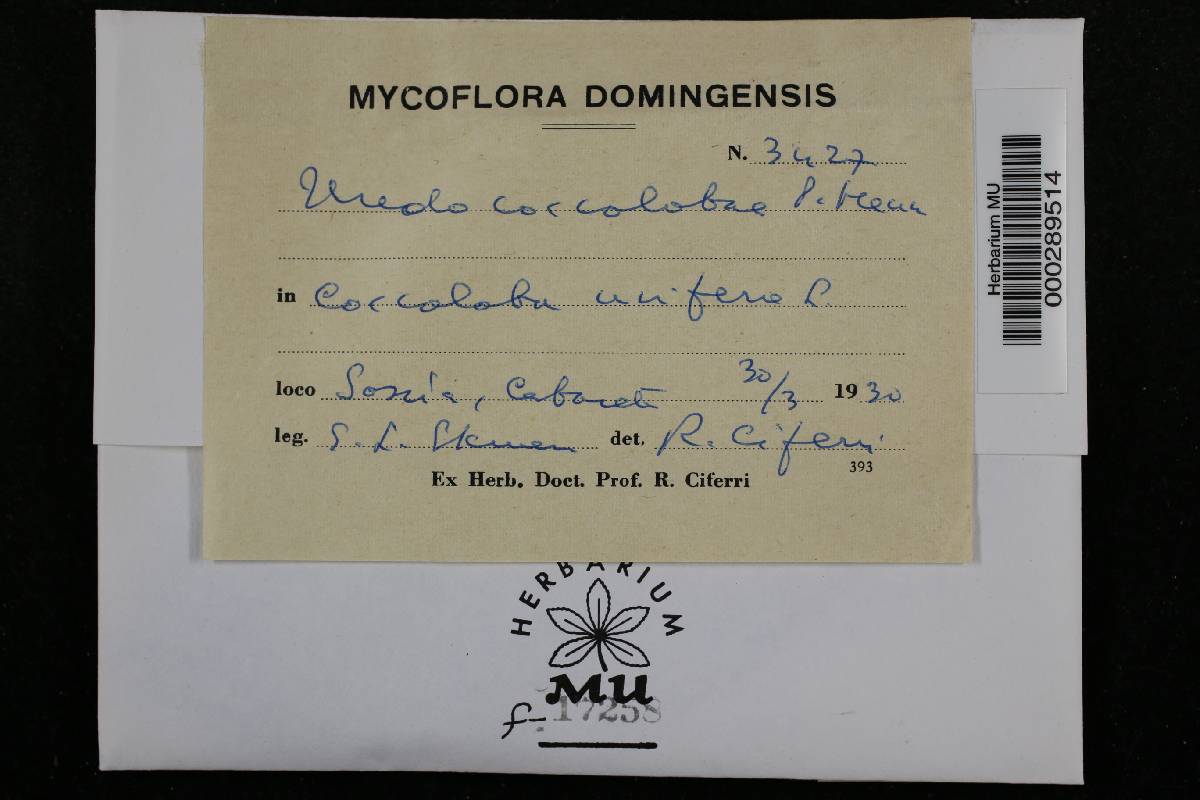 MYCOFLORA DOMINGENSIS
N. 3427
Uredo coccolobae P. Henn
in Coccoloba uvifera L.
loco Sosúa, Cabarete 30/3 1930
leg. E. L. Ekman det. R. Ciferri
393
Ex Herb. Doct. Prof. R. Ciferri
Herbarium MU
000289514
HERBARIUM
MU
f-17258